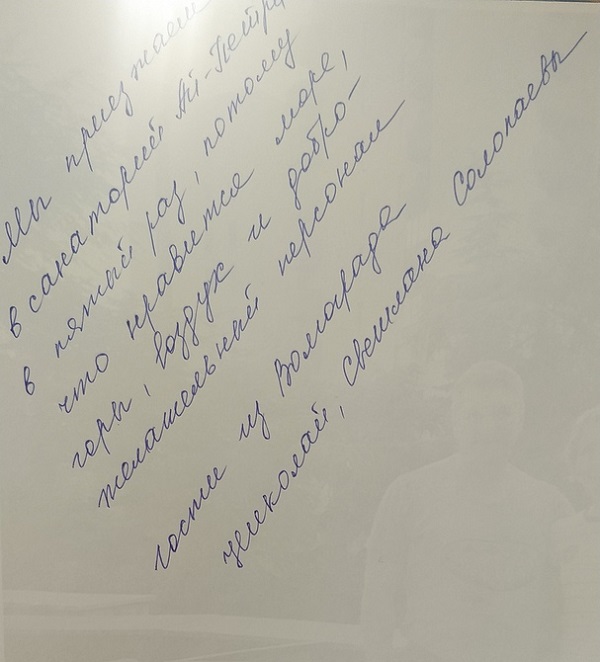 Мы приезжаем
в санаторий Ай-Петри
в пятый раз, потому
что нравится море,
горы, воздух и добро-
желательный персонал
гости из Волгограда
Николай, Светлана Солопаевы